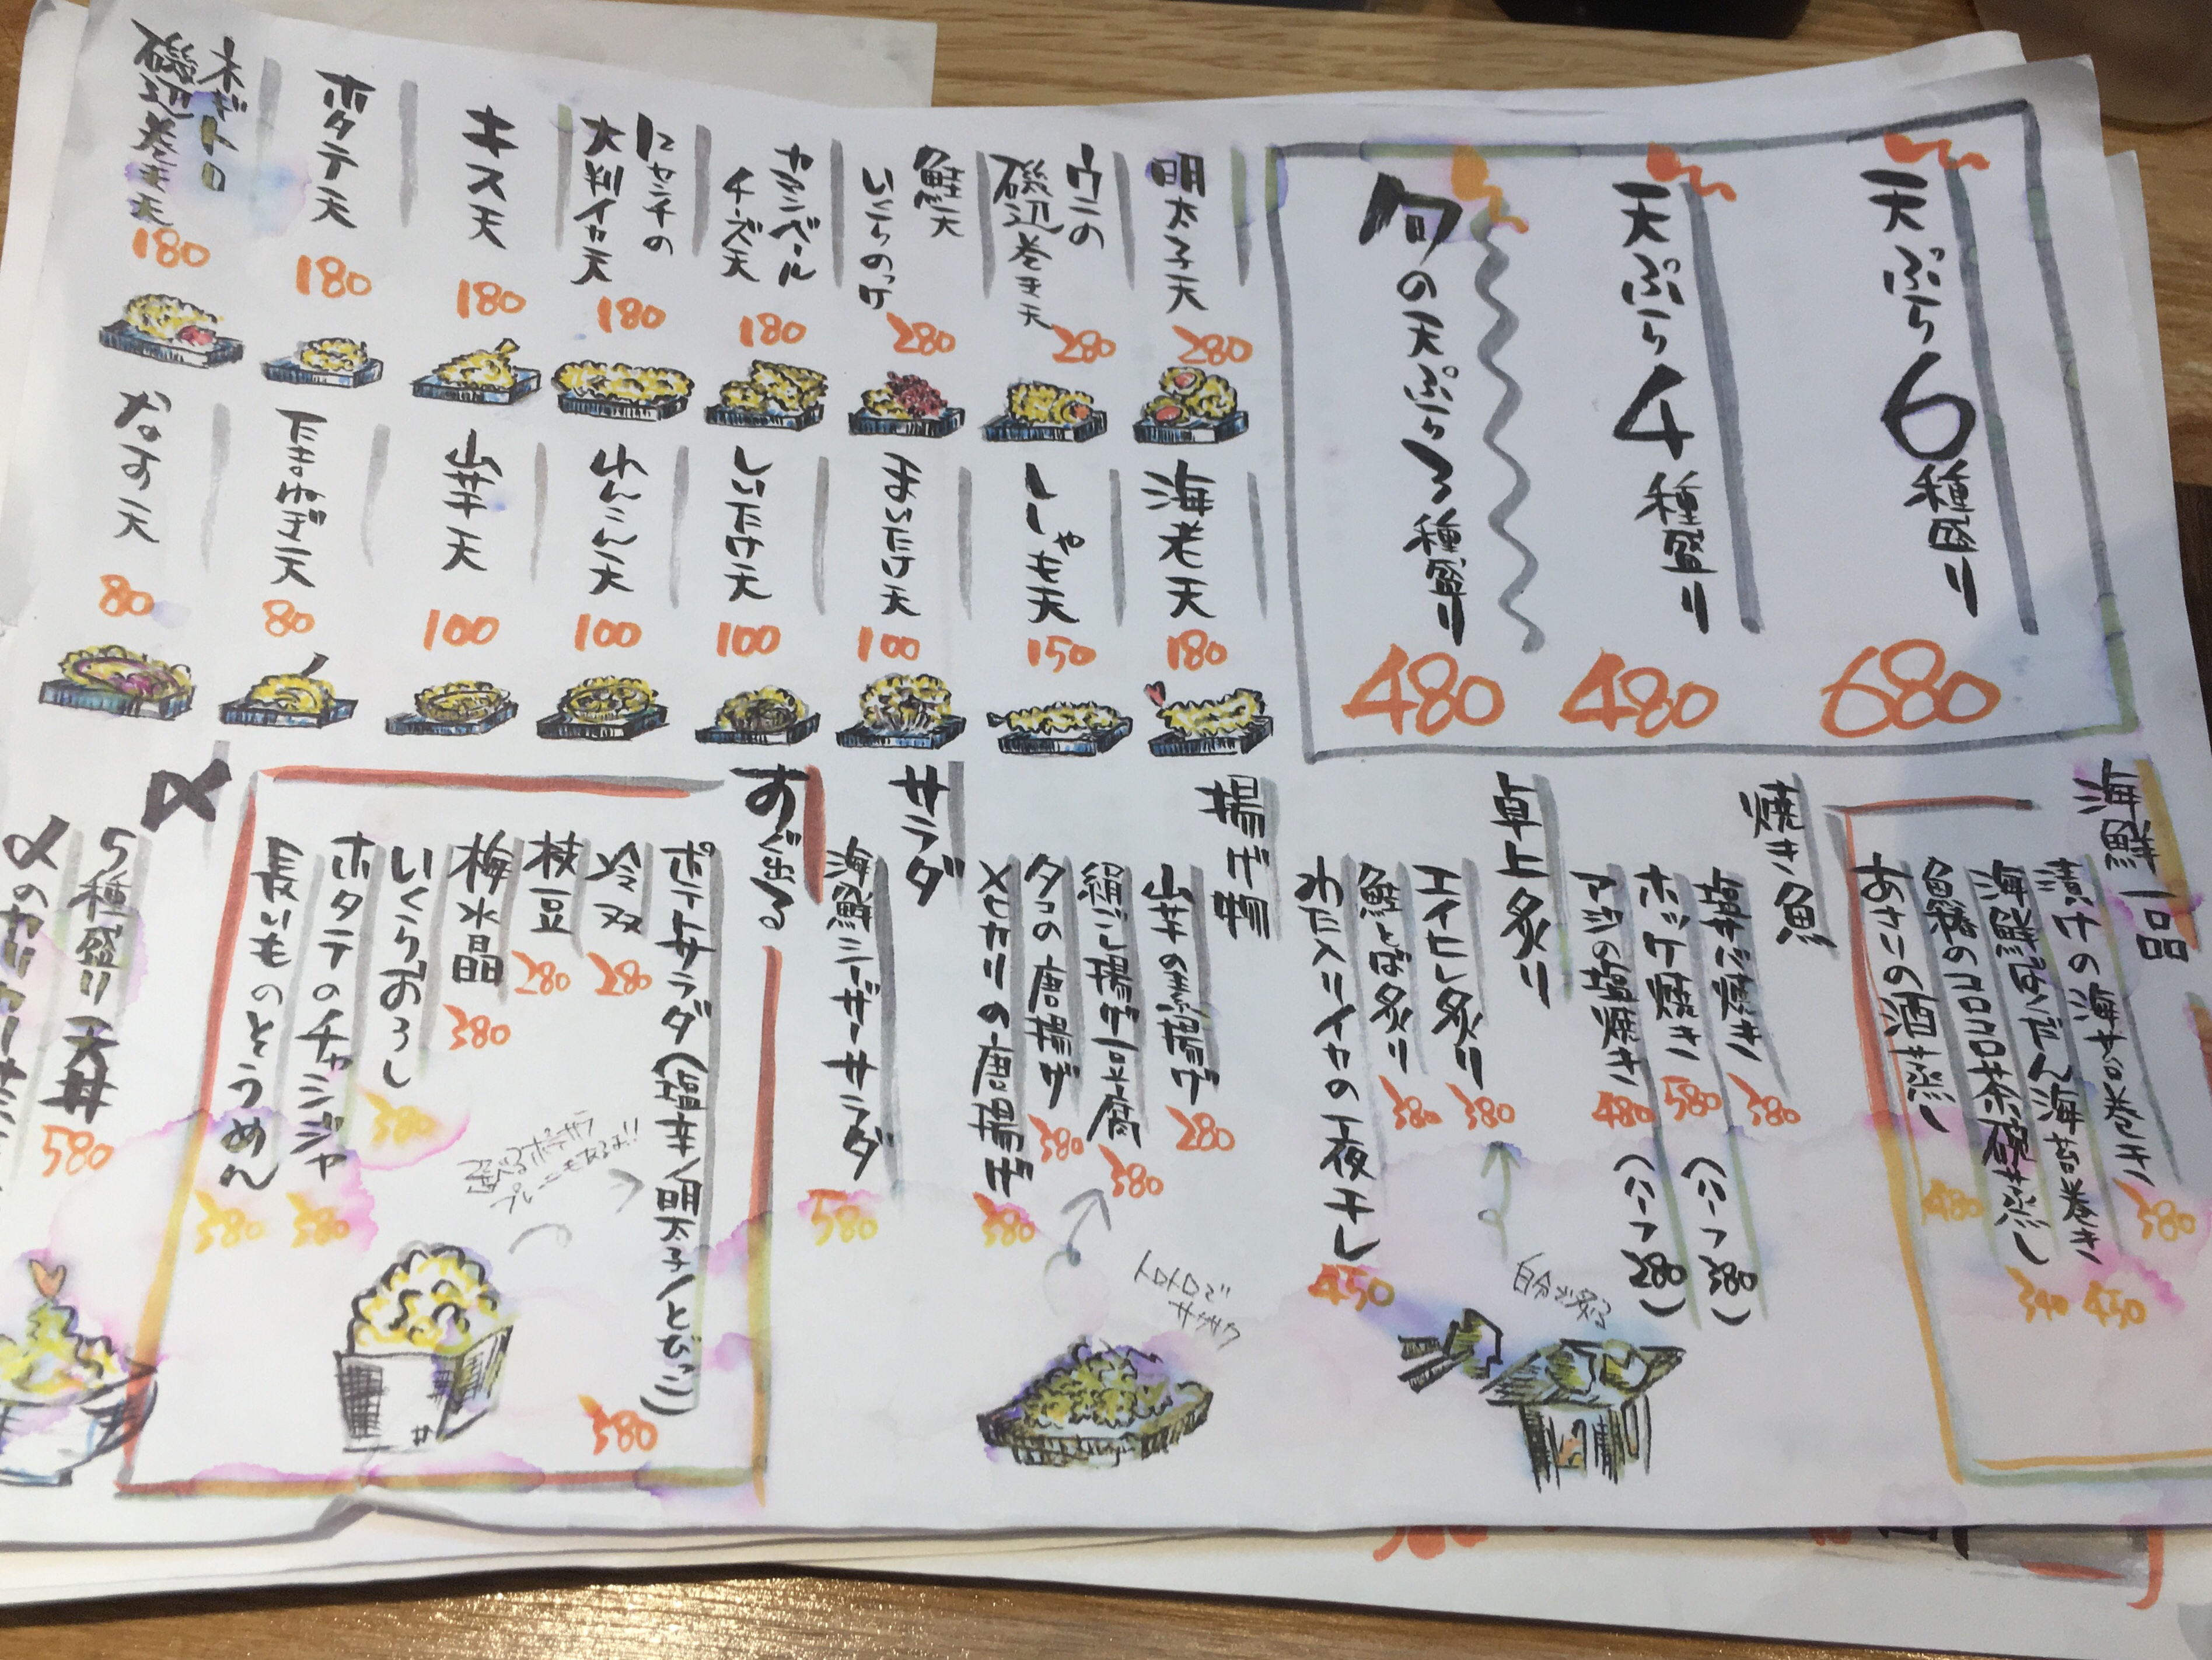 天ぷら6種盛り
680
天ぷら4種盛り
480
旬の天ぷら3種盛り
480
明太子天
280
ウニの
磯辺巻き天
280
鮭天
いくらのっけ
280
カマンベール
チーズ天
180
大判イカ天
180
キス天
180
ホタテ天
180
ネギトロ
磯辺巻き天
180
海老天
180
ししゃも天
150
まいたけ天
100
しいたけ天
100
れんこん天
100
山芋天
100
たまねぎ天
80
なす天
80
海鮮一品
漬けの海苔巻き
380
海鮮ばくだん海苔巻き
450
茶碗蒸し
340
あさりの酒蒸し
480
焼き魚
塩サバ焼き
380
(ハーフ380)
ホッケ焼き
580
(ハーフ280)
アジの塩焼き
480
卓上炙り
エイヒレ炙り
380
鮭とば炙り
380
わた入りイカの一夜干し
450
自分で炙る
揚げ物
山芋の素揚げ
280
絹ごし揚げ豆腐
380
タコの唐揚げ
380
メヒカリの唐揚げ
380
トロトロで
サクサク
サラダ
海鮮シーザーサラダ
580
すぐ出る
ポテトサラダ(塩辛/明太子/とびっこ)
380
選べるポテサラ
プレーンもあるよ!!
冷奴
280
枝豆
280
梅水晶
380
いくらおろし
380
ホタテのチャンジャ
380
長いものとうめん
380
〆
5種盛り天丼
580